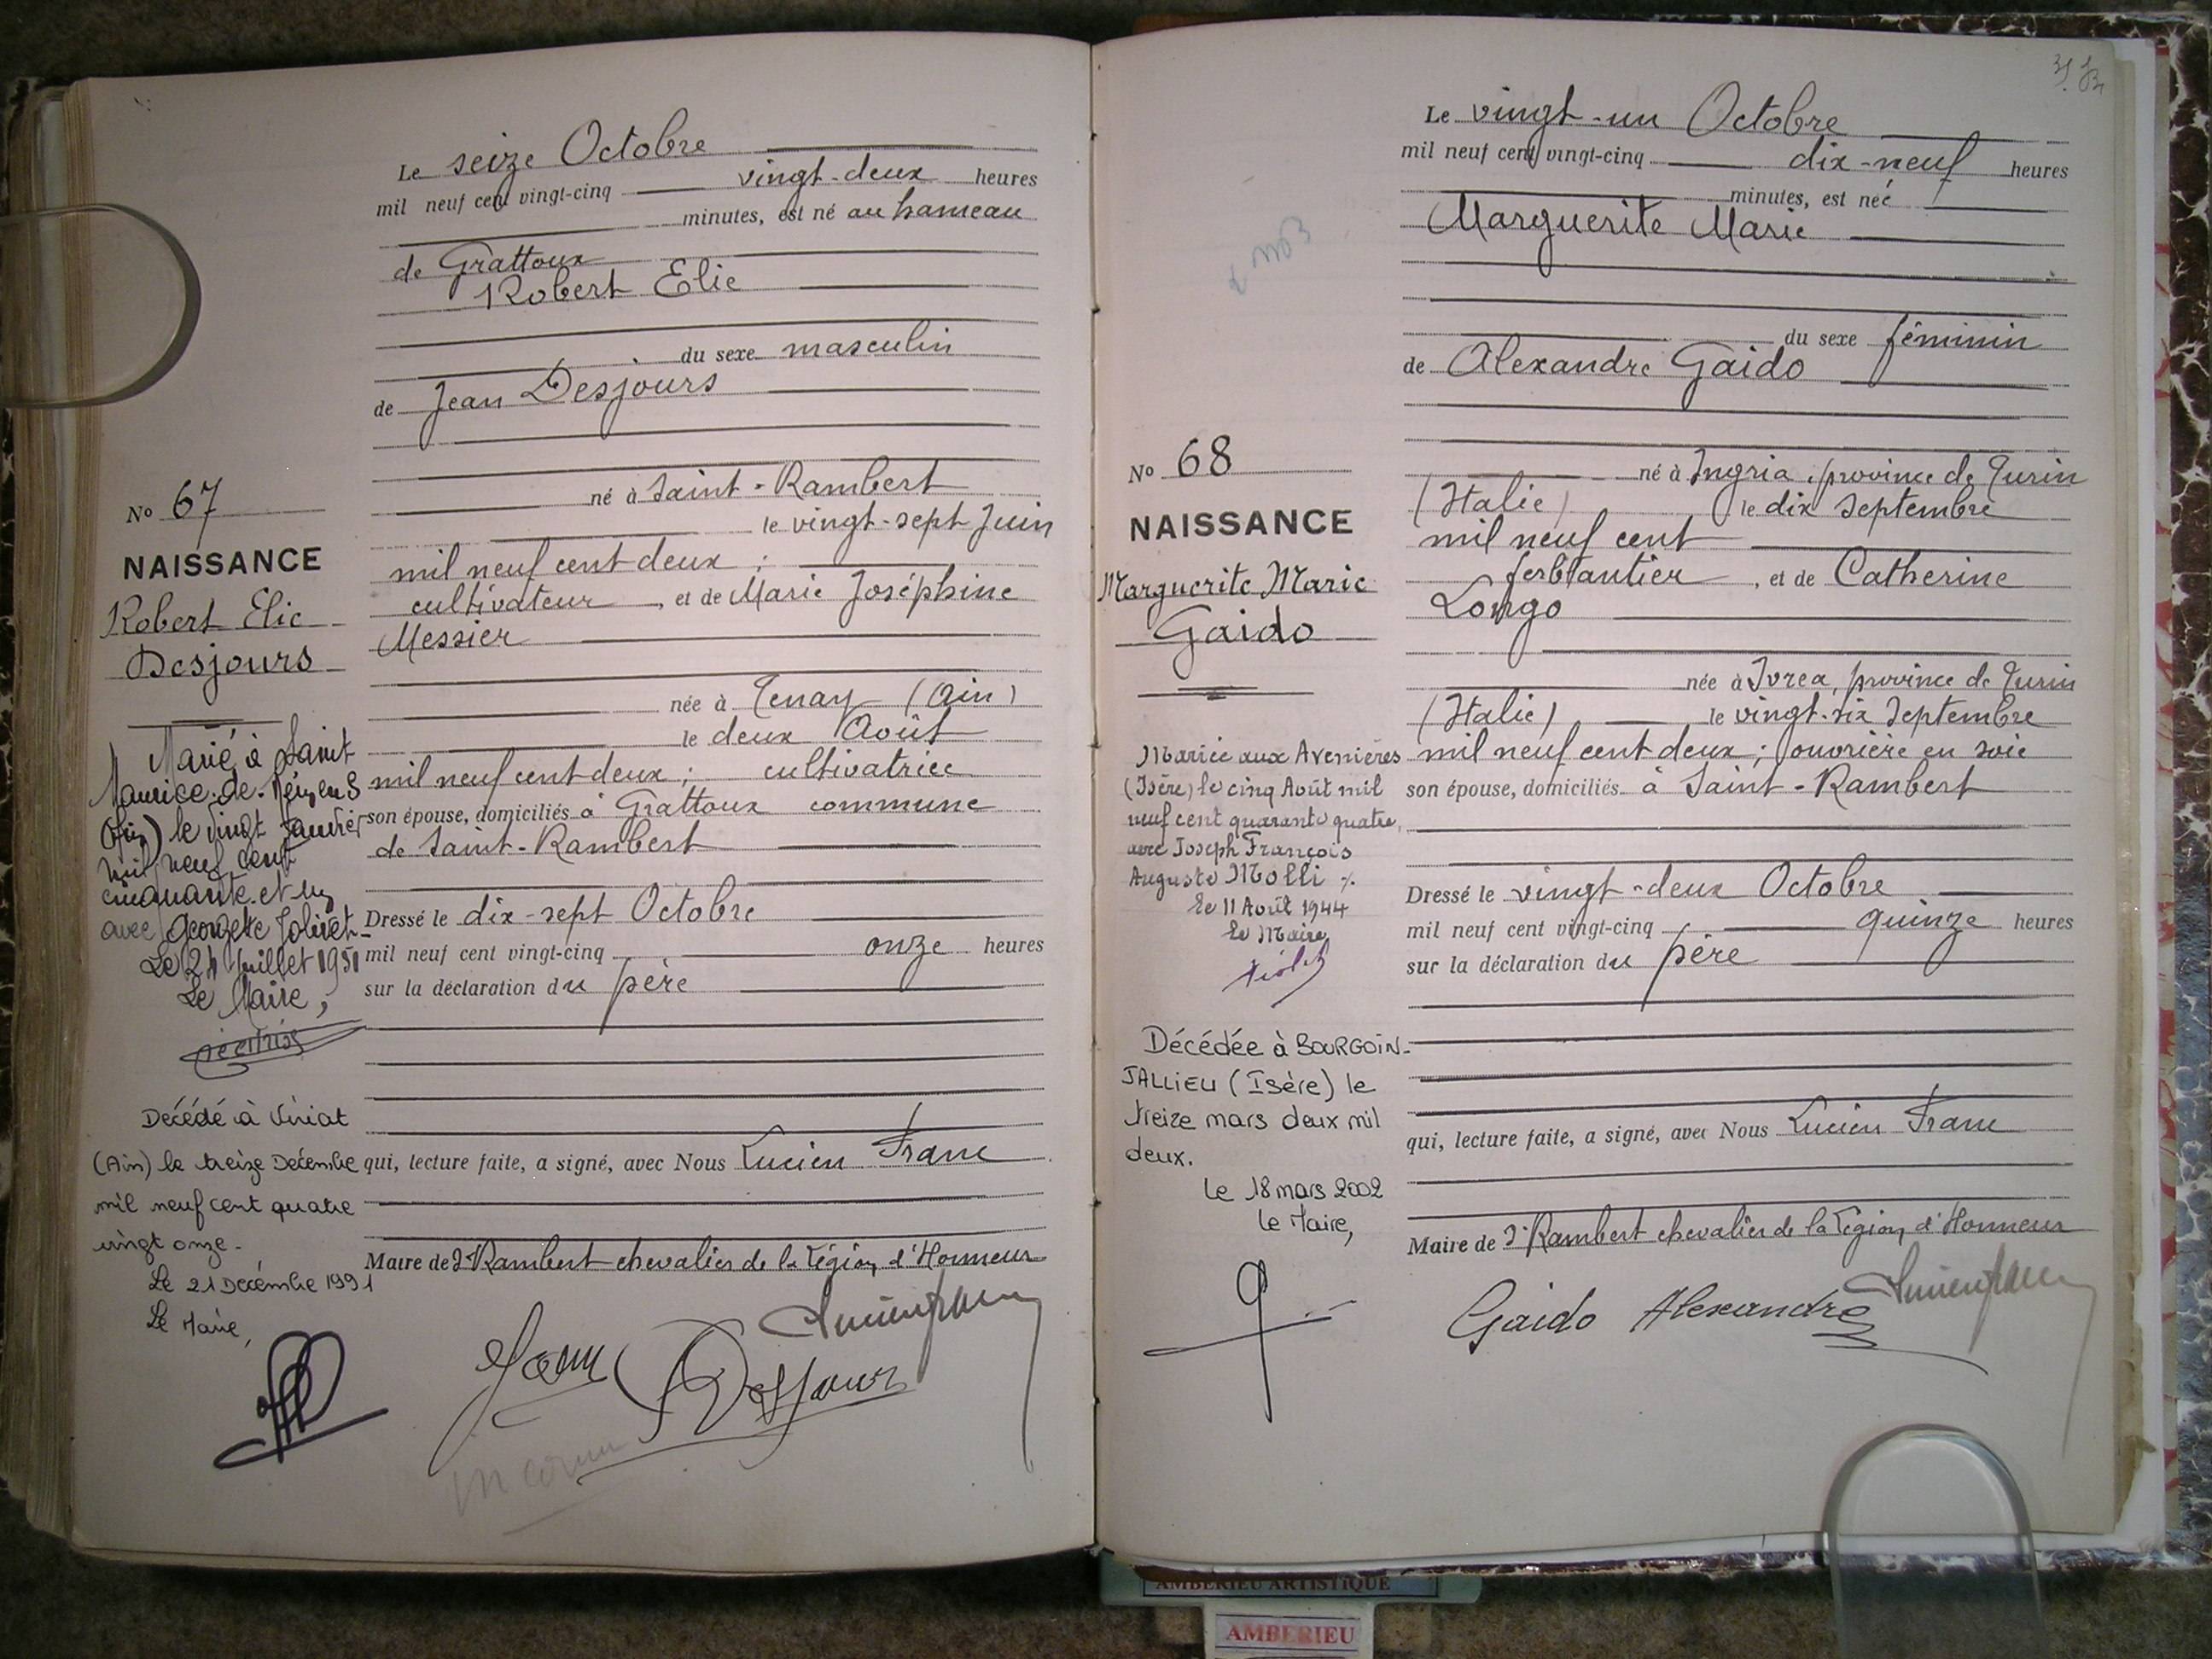 Le seize Octobre
mil neuf cent vingt-cinq vingt-deux heures
minutes, est né au hameau
de Grattoux
Robert Elie
du sexe masculin
de Jean Desjours
né à Saint-Rambert
le vingt-sept Juin
mil neuf cent deux ;
cultivateur, et de Marie Joséphine
Messier
née à Tenay (Ain)
le deux Août
mil neuf cent deux ; cultivatrice
son épouse, domiciliés à Grattoux commune
de Saint-Rambert
Dressé le dix-sept Octobre
mil neuf cent vingt-cinq onze heures
sur la déclaration du père
qui, lecture faite, a signé, avec Nous Lucien Franc
Maire de St Rambert chevalier de la Légion d'Honneur
Jean Desjours
No 67
NAISSANCE
Robert Elie
Desjours
Marié à Saint
Maurice-de-
(Ain) le vingt Janvier
mil neuf cent
cinquante et un
avec Georgette
Le 24 Juillet 1951
Le Maire,
Décédé à Viriat
(Ain) le treize Décembre
mil neuf cent quatre
vingt onze.
Le 21 Décembre 1991
Le Maire,
Le vingt-un Octobre
mil neuf cent vingt-cinq dix-neuf heures
minutes, est née
Marguerite Marie
du sexe féminin
de Alexandre Gaido
né à Ingria, province de Turin
(Italie) le dix Septembre
mil neuf cent
ferblantier, et de Catherine
Longo
née à Ivrea, province de Turin
(Italie) le vingt-six Septembre
mil neuf cent deux ; ouvrière en soie
son épouse, domiciliés à Saint-Rambert
Dressé le vingt-deux Octobre
mil neuf cent vingt-cinq quinze heures
sur la déclaration du père
qui, lecture faite, a signé, avec Nous Lucien Franc
Maire de St Rambert chevalier de la Légion d'Honneur
Gaido Alexandre
No 68
NAISSANCE
Marguerite Marie
Gaido
Mariée aux Avenières
(Isère) le cinq Août mil
neuf cent quarante quatre,
avec Joseph François
Auguste Molli
Le 11 Août 1944
Le Maire
Décédée à BOURGOIN-
JALLIEU (Isère) le
treize mars deux mil
deux.
le 18 mars 2002
le Maire,
AMBERIEU ARTISTIQUE
AMBERIEU